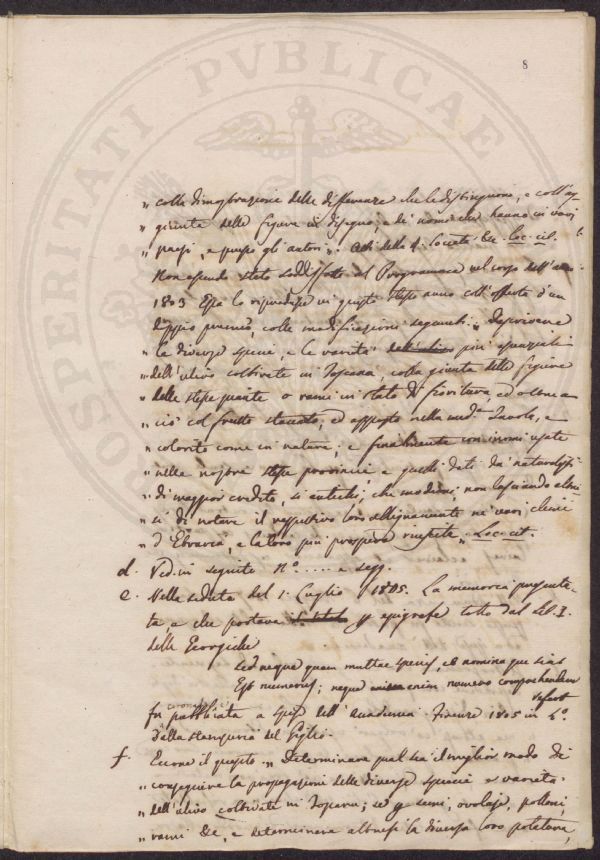 PROSPERITATI PVBLICAE
8
" colla dimostrazione delle differenze che le distinguono, e coll'ag-
" giunta delle figure in disegno, e de' nomi che hanno in varj
" paesi, e presso gli autori ". Atti della Società &c loc. cit.
Non essendo stato soddisfatto al Programma nel corso dell'anno
1803 Essa lo riprodusse in questo stesso anno coll'offerta d'un
doppio premio, colle modificazioni seguenti: " Descrivere
" le diverse specie, e le varietà più essenziali
" dell'ulivo coltivate in Toscana colla giunta delle figure
" delle stesse piante o rami in stato di fioritura ed oltre a
" ciò col frutto staccato, ed apposto nella med.a Tavola, e
" colorito come in natura; e finalmente con i nomi usati
" nelle nostre stesse provincie e quelli dati da' naturalisti
" di maggior credito, sì antichi, che moderni, non lasciando altre-
" sì di notare il respettivo loro allignamento ne' varj climi
" d'Etruria, e la loro più prospera riuscita " Loc. cit.
d. Ved. in seguito N.o .... e segg.
e. Nella seduta del 1. Luglio 1805. La memoria presenta-
ta e che portava p epigrafe tolto dal Lib. I.
delle Georgiche
Sed neque quam multae species, et nomina quae sint
Est numerus; neque enim numero comprehendere
refert
fu pubblicata a spese dell'Accademia Firenze 1805 in 4.o
dalla stamperia del Giglio.
f. Eccone il quesito. " Determinare qual sia il miglior modo di
" conseguire la propagazione delle diverse specie e varietà
" dell'ulivo coltivate in Toscana; se p semi, ovolaje, polloni,
" rami &c, e determinare altresì la diversa loro potatura,